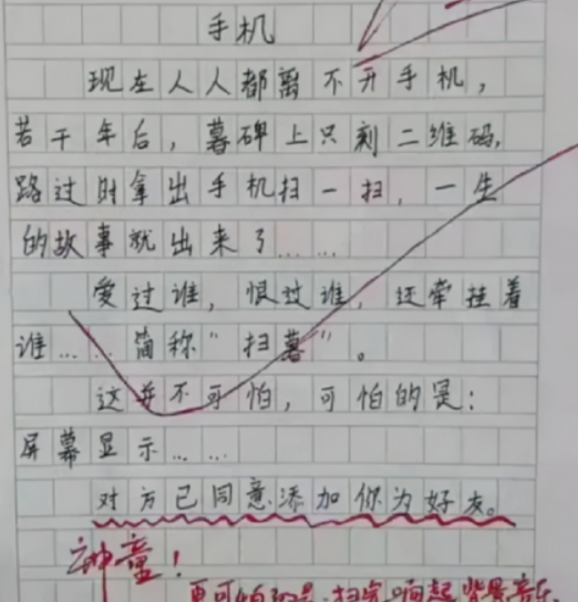 手机
现在人人都离不开手机，
若干年后，墓碑上只刻二维码，
路过时拿出手机扫一扫，一生
的故事就出来了……
爱过谁，恨过谁，还牵挂着
谁……简称“扫墓”。
这并不可怕，可怕的是：
屏幕显示……
对方已同意添加你为好友。
神童！
更可怕的是，扫完响起背景音乐，